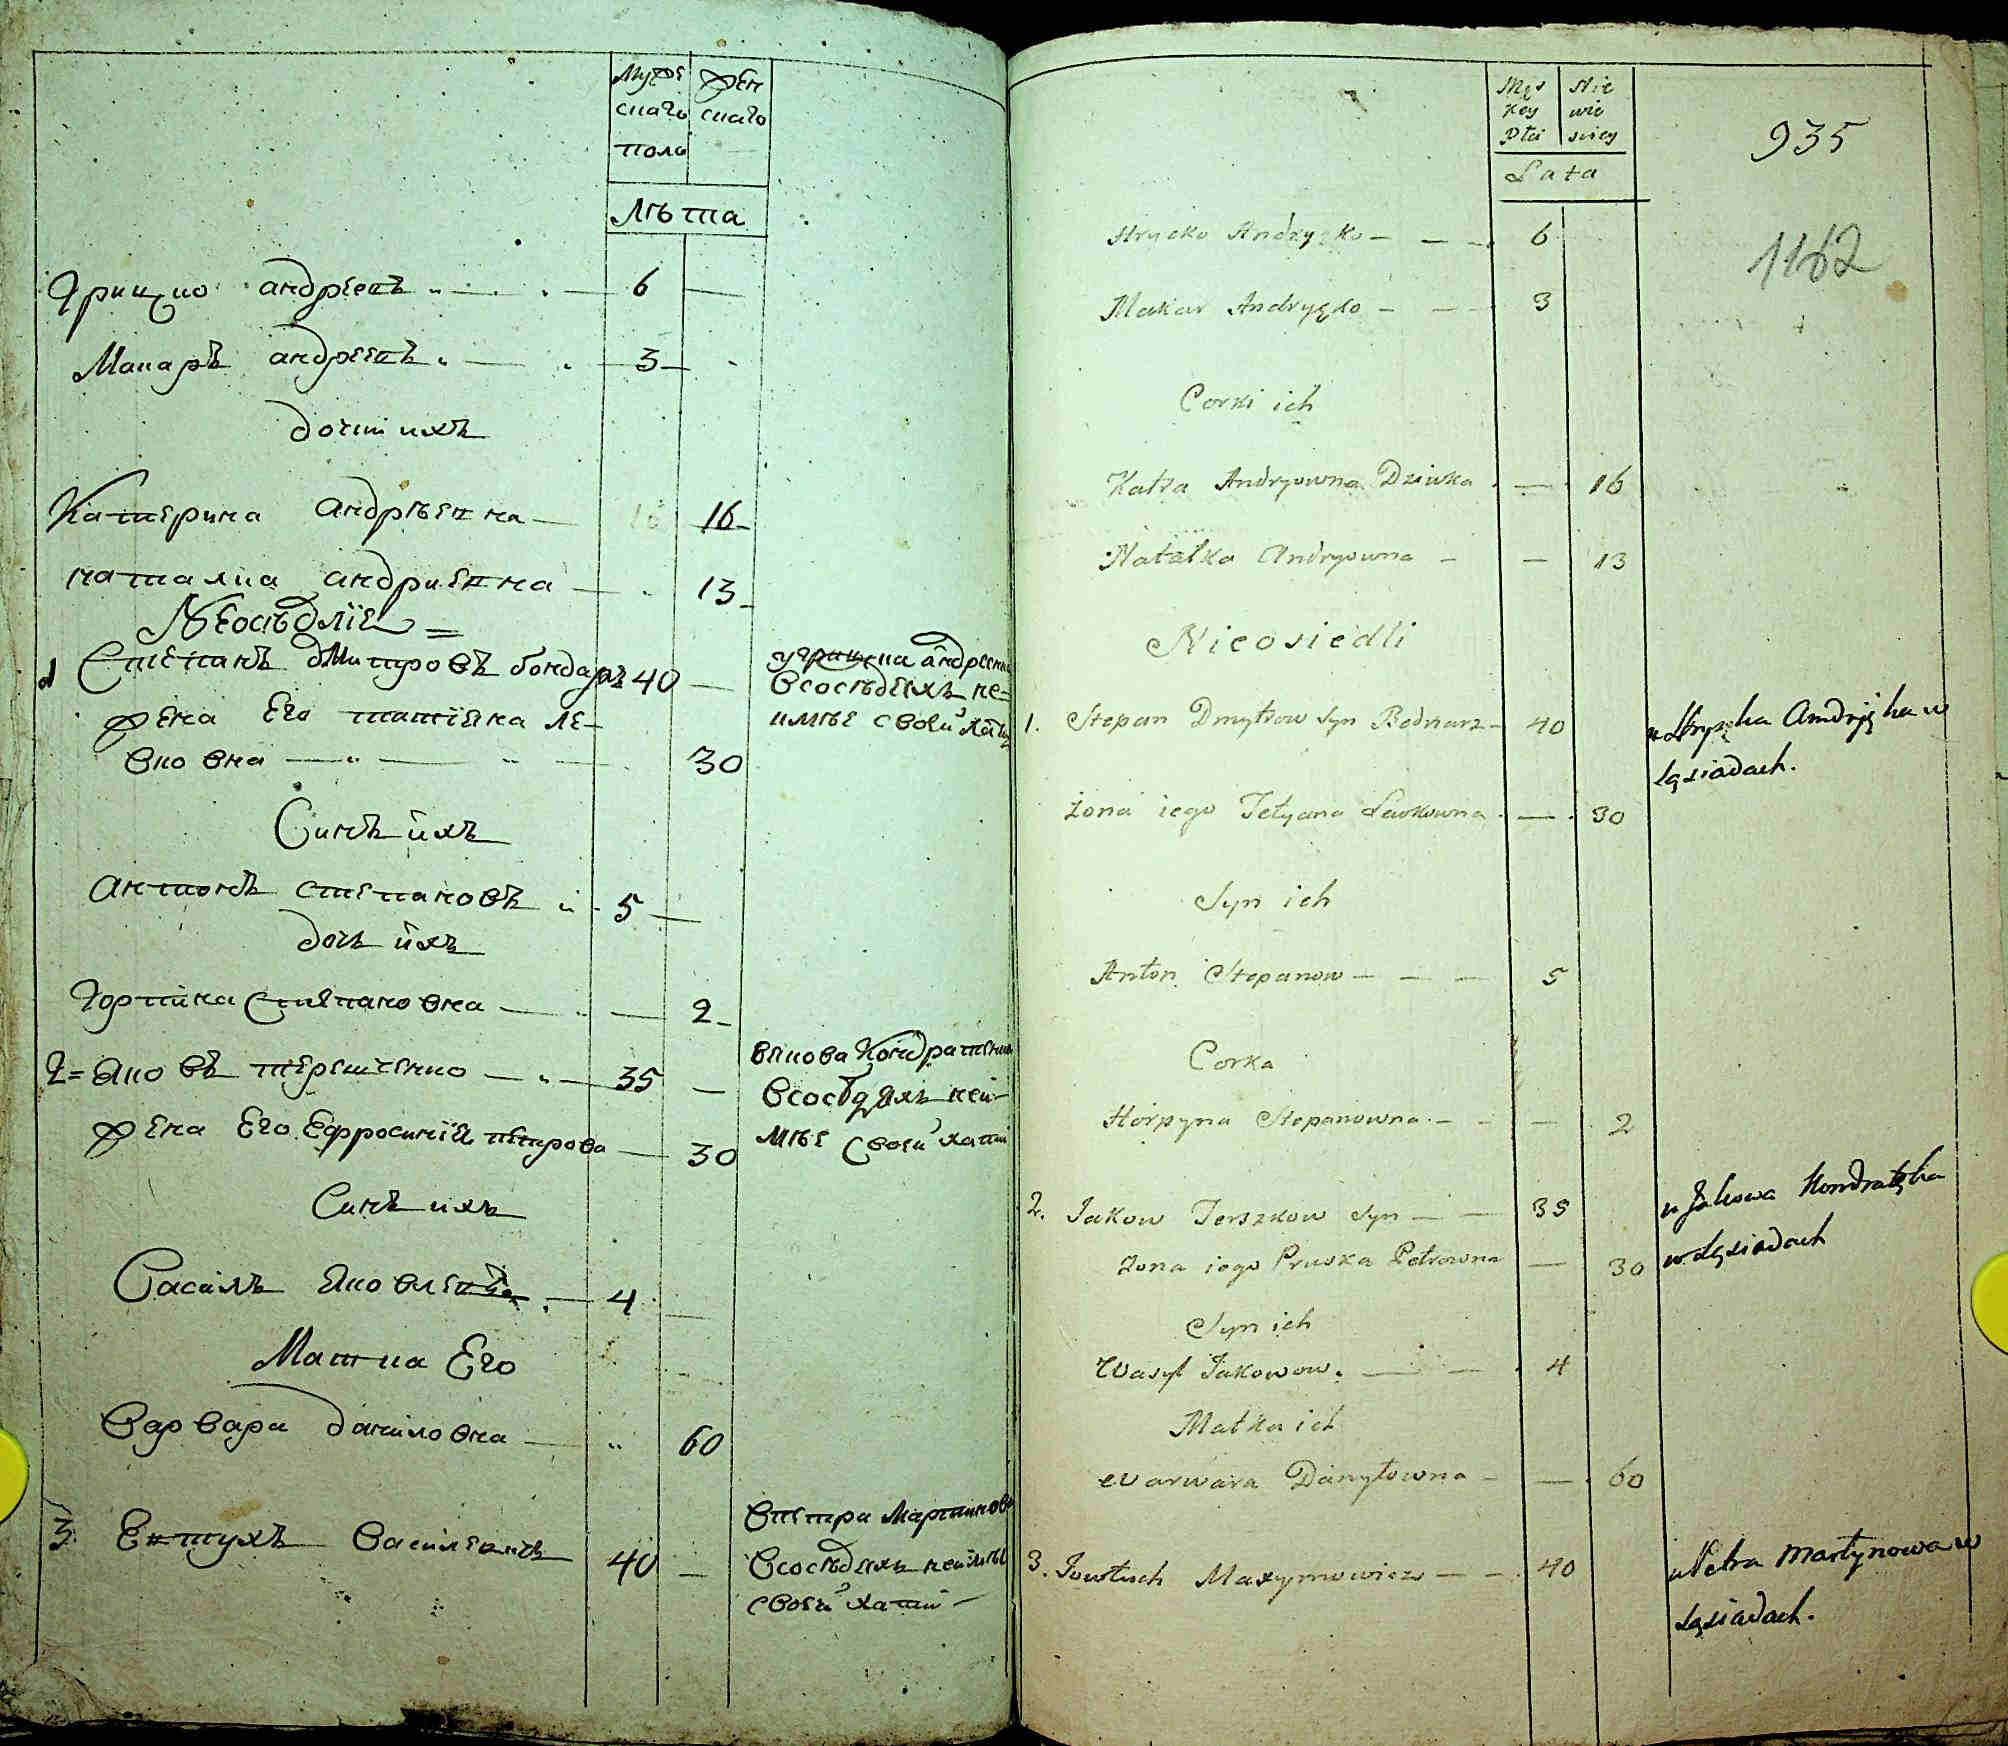 Муже жен
скаго скаго
пола
Лѣта
Грицко андрѣевъ 6 —
Макаръ андрѣевъ 3 —
дочки ихъ
Катерина андрѣевна — 16 16
наталка андриевна — 13
Неосѣдліе =
1 Степанъ дмитровъ бондаръ 40 —
угрицка андреенка
всосѣдяхъ не=
имѣе своей хати
жена Его татіяна ле-
вковна — 30
Синъ ихъ
антонъ степановъ 5 —
дочъ ихъ
Горпина Степановна — — 2
2= Яковъ терешченко — 35 —
вякова Кондратенка
всосѣдяхъ неи-
мѣе своей хати
жена Его Ефросинія петрова — 30
Синъ ихъ
Василь Яковлевъ — 4 —
Матка Его
Варвара данилoвна — 60
3. Евтухъ Василевичъ 40 —
впетра Мартинова
всосѣдяхъ неимѣе
своей хати —
Męs Nie
key wie
płci sciey
Lata
935
1162
Hrycko Andryęko — — 6
Makar Andryęko — — 3
Corki ich
Katra Andryowna Dziwka — 16
Natałka Andryowna — — 13
Nieosiedli
1. Stepan Dmytrow Syn Bednarz — 40
u Hrycka Andryjęka w
Sąsiadach.
żona iego Tetyana Lewkowna — 30
Syn ich
Anton Stepanow — — — 5
Corka
Horpyna Stepanowna — — — 2
2. Jakow Terszkow Syn — — 35
u Jakowa Kondratęka
w Sąsiadach
żona iego Pruska Petrowna — 30
Syn ich
Wasyl Jakowow — — 4
Matka ich
Warwara Danyłowna — — 60
3. Jowtuch Maxymowicz — — 40
u Petra Martynowa w
Sąsiadach.